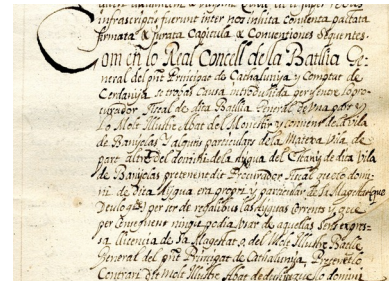 infrascripts fueront inter nos inhita Conventa pactata
firmata & jurata Capitula & Conventiones Sequentes.
Com en lo Real Concell de la Batllia Ge-
neral del pnt Principat de Cathalunya y Comptat de
Cerdanya se trobàs causa introduhida per y entre lo pro-
curador Fiscal de dita Batllia General de una part y
lo Molt Illustre Abat del Monestir y convent de la vila
de Banyolas y alguns particulars de la Mateixa Vila de
part altre del domini de la Aygua del Estany de dita Vila
de Banyolas pretenent dit Procurador Fiscal que lo domi-
ni de dita Aygua era propri y particular de sa Magestat (que
Deu lo gde) per ser de regalias las Ayguas corrents y que
per consequent ningú podia usar de aquellas sens expres-
sa llicencia de Sa Magestat o del Molt Illustre Batlle
General del pnt Principat de Cathalunya, Pretenent lo
Contrari dit Molt Illustre Abat de dehir que lo domini